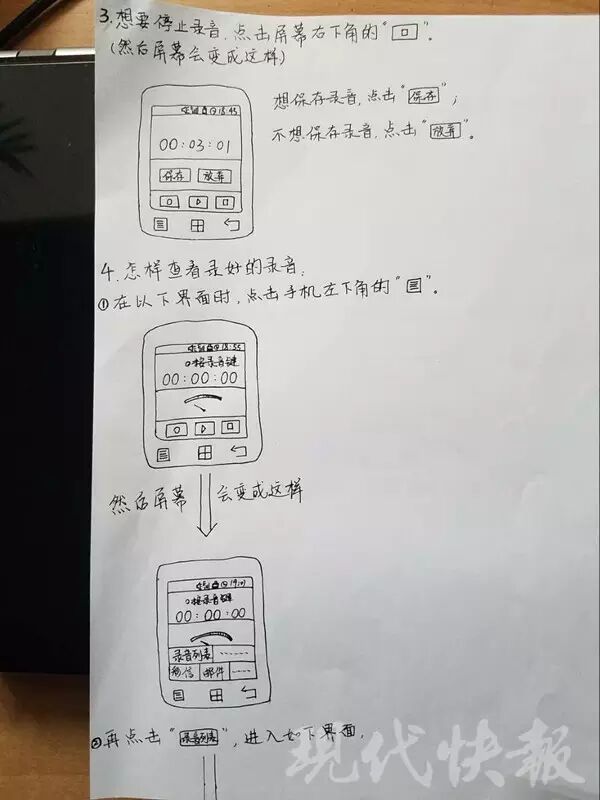 3.想要停止录音,点击屏幕右下角的"回"。
(然后屏幕会变成这样)
想保存录音,点击"保存";
不想保存录音,点击"放弃"。
18:45
00:03:01
保存 放弃
4.怎样查看录好的录音:
①在以下界面时,点击手机左下角的"目"。
18:55
按录音键
00:00:00
然后屏幕会变成这样
19:01
按录音键
00:00:00
录音列表
短信 邮件
②再点击"录音列表",进入如下界面,
现代快報